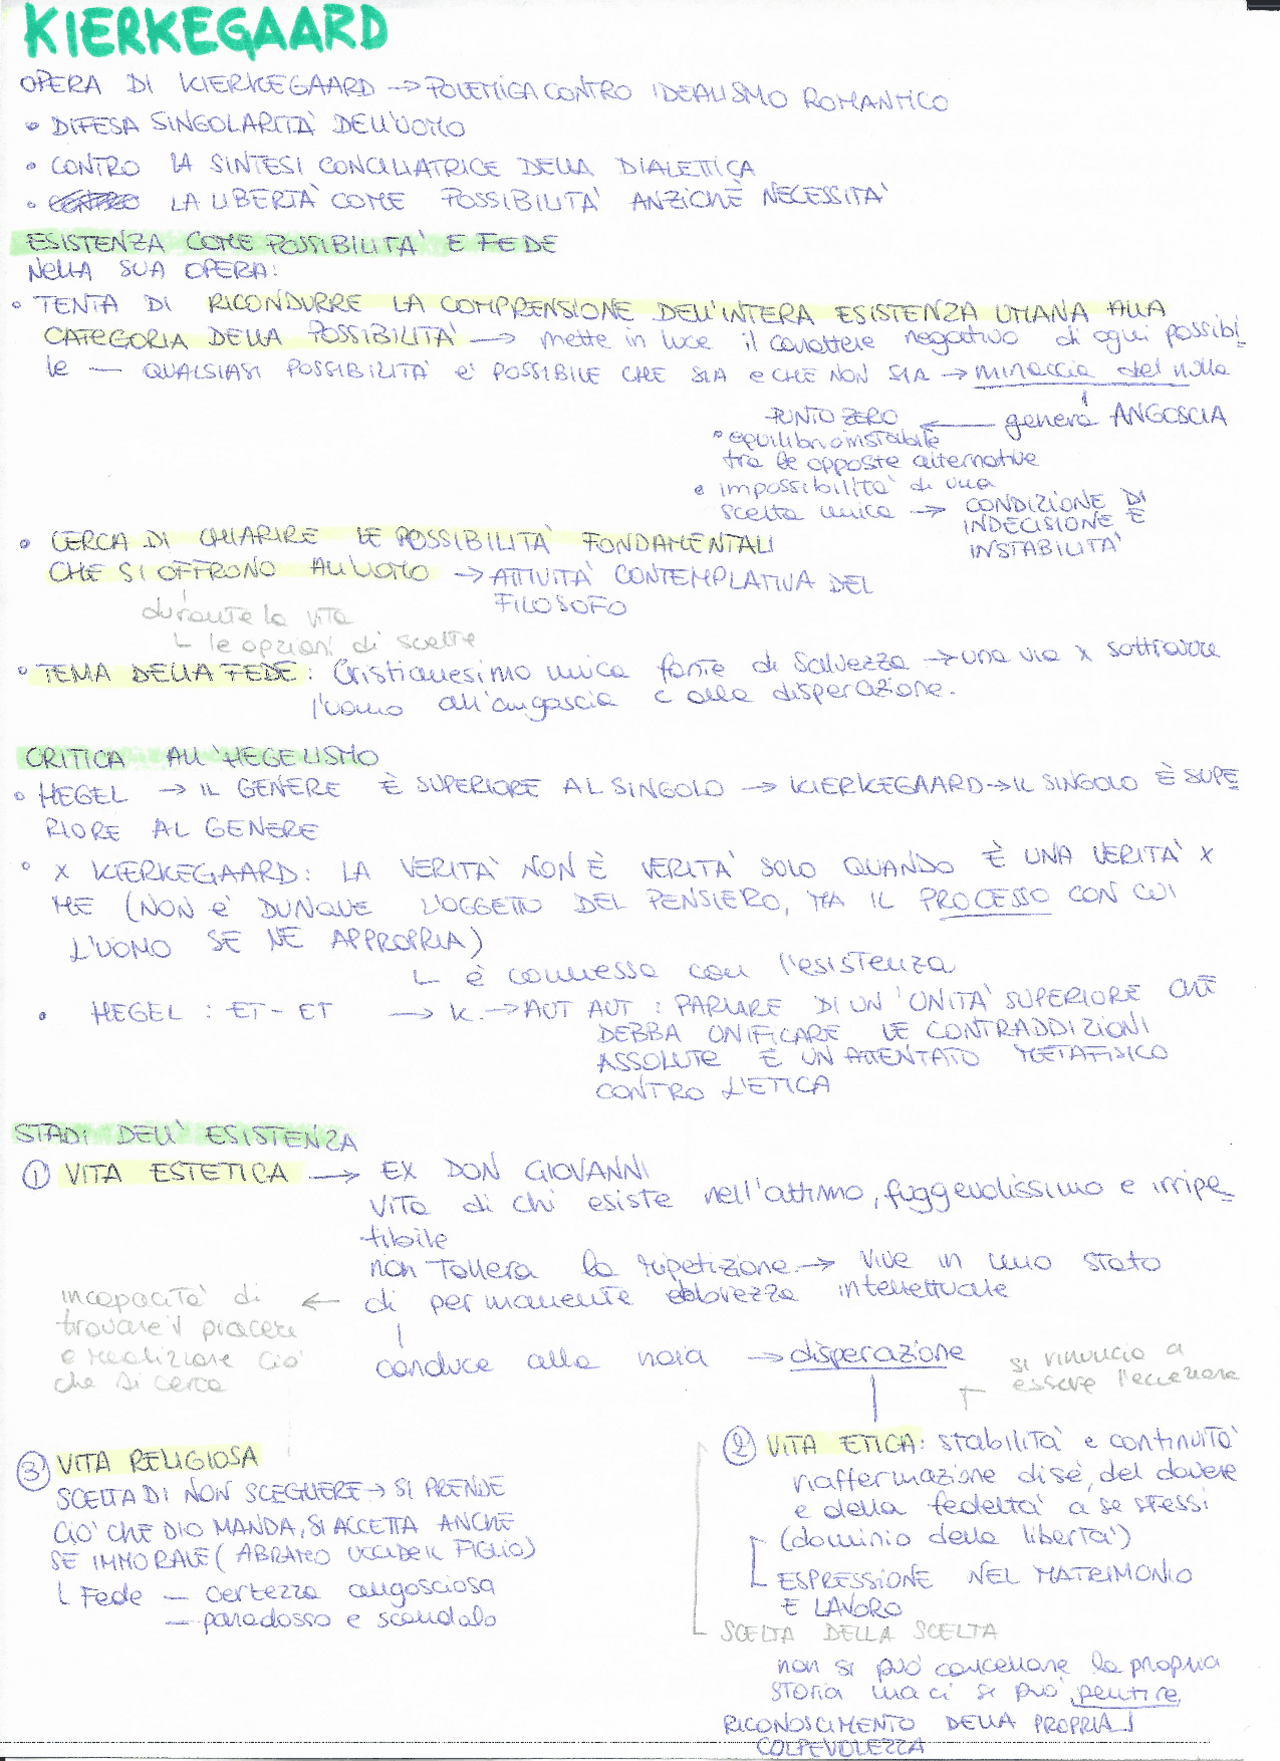 KIERKEGAARD
OPERA DI KIERKEGAARD → POLEMICA CONTRO IDEALISMO ROMANTICO
• DIFESA SINGOLARITÀ DELL'UOMO
• CONTRO LA SINTESI CONCILIATRICE DELLA DIALETTICA
• LA LIBERTÀ COME POSSIBILITÀ ANZICHÈ NECESSITÀ
ESISTENZA COME POSSIBILITÀ E FEDE
NELLA SUA OPERA:
• TENTA DI RICONDURRE LA COMPRENSIONE DELL'INTERA ESISTENZA UMANA ALLA
CATEGORIA DELLA POSSIBILITÀ → mette in luce il carattere negativo di ogni possibi
le — QUALSIASI POSSIBILITÀ e' POSSIBILE CHE SIA e CHE NON SIA → minaccia del nulla
PUNTO ZERO ← genera ANGOSCIA
• equilibrio instabile
tra le opposte alternative
• impossibilità di una
scelta unica → CONDIZIONE DI
INDECISIONE E
INSTABILITÀ
• CERCA DI CHIARIRE LE POSSIBILITÀ FONDAMENTALI
CHE SI OFFRONO ALL'UOMO → ATTIVITÀ CONTEMPLATIVA DEL
FILOSOFO
durante la vita
↳ le opzioni di scelte
• TEMA DELLA FEDE: Cristianesimo unica fonte di salvezza → una via x sottrarre
l'uomo all'angoscia e alla disperazione.
CRITICA ALL'HEGELISMO
• HEGEL → IL GENERE È SUPERIORE AL SINGOLO → KIERKEGAARD → IL SINGOLO È SUPE
RIORE AL GENERE
• X KIERKEGAARD: LA VERITÀ NON È VERITÀ SOLO QUANDO È UNA VERITÀ X
ME (NON e' DUNQUE L'OGGETTO DEL PENSIERO, MA IL PROCESSO CON CUI
L'UOMO SE NE APPROPRIA)
↳ è connessa con l'esistenza
• HEGEL : ET - ET → K. → AUT AUT : PARLARE DI UN'UNITÀ SUPERIORE CHE
DEBBA UNIFICARE LE CONTRADDIZIONI
ASSOLUTE È UN ATTENTATO METAFISICO
CONTRO L'ETICA
STADI DELL'ESISTENZA
① VITA ESTETICA → EX DON GIOVANNI
Vita di chi esiste nell'attimo, fuggevolissimo e irripe
tibile
non tollera la ripetizione → vive in uno stato
di permanente ebbrezza intellettuale
incapacità di ←
trovare il piacere
e realizzare ciò
che si cerca
conduce alla noia → disperazione
si rinuncia a
essere l'eccezione
② VITA ETICA: stabilità e continuità
riaffermazione di sè, del dovere
e della fedeltà a se stessi
(dominio della libertà)
↳ ESPRESSIONE NEL MATRIMONIO
E LAVORO
SCELTA DELLA SCELTA
non si può cancellare la propria
storia ma ci si può pentire
RICONOSCIMENTO DELLA PROPRIA
COLPEVOLEZZA
③ VITA RELIGIOSA
SCELTA DI NON SCEGLIERE → SI PRENDE
CIÒ CHE DIO MANDA, SI ACCETTA ANCHE
SE IMMORALE (ABRAMO UCCIDE IL FIGLIO)
↳ Fede — certezza angosciosa
— paradosso e scandalo